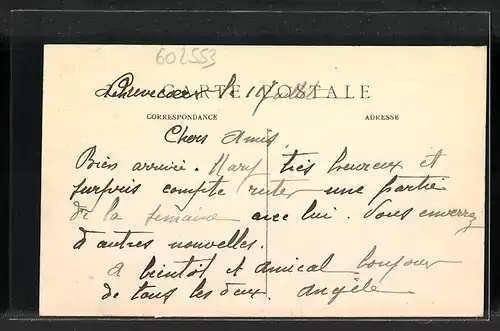 602553
CARTE POSTALE
le 1 Juillet
CORRESPONDANCE
ADRESSE
Chers Amis
Bien arrivée. très heureux et
surpris compte rester une partie
de la semaine avec lui. Vous enverrez
d'autres nouvelles.
A bientôt et amical bonjour
de tous les deux. Angèle